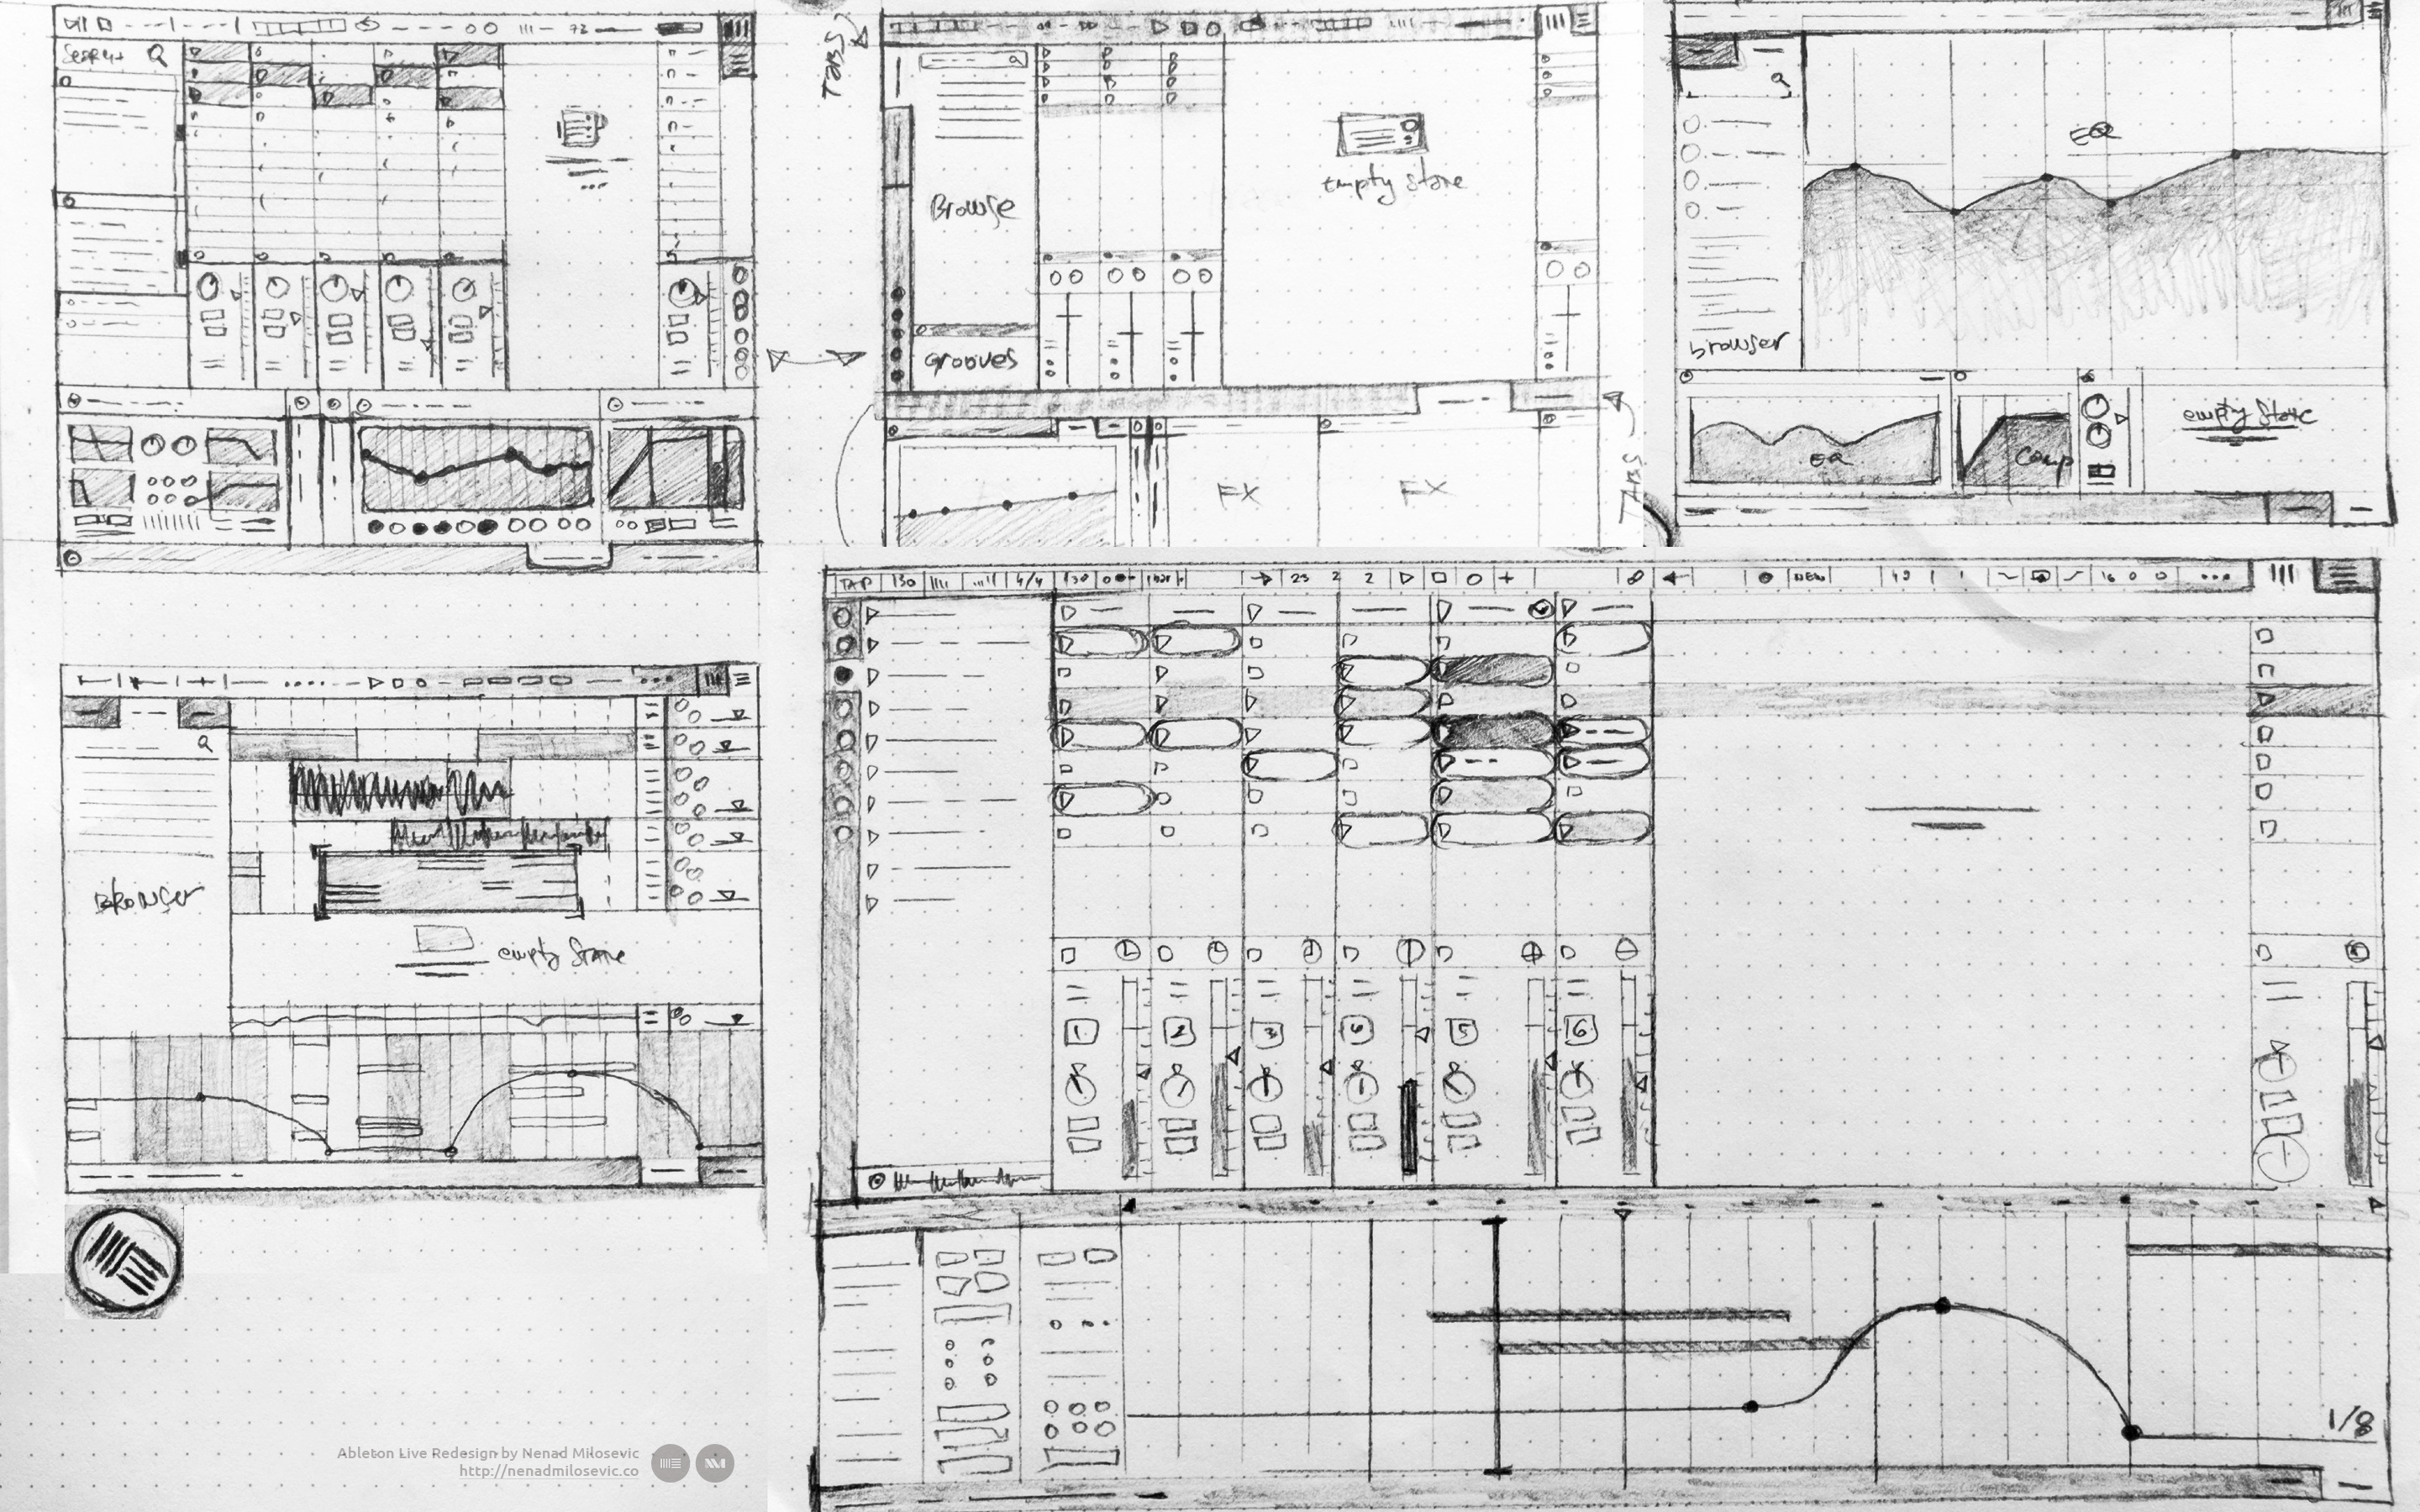 Search
73
TABS
Browse
grooves
empty state
FX
FX
TABS
EQ
browser
EQ
Comp
empty state
Browser
empty state
TAP
130
4/4
130
23
2
2
NEW
49
1
1
16
0
0
1
2
3
4
5
6
1/8
Ableton Live Redesign by Nenad Milosevic
http://nenadmilosevic.co